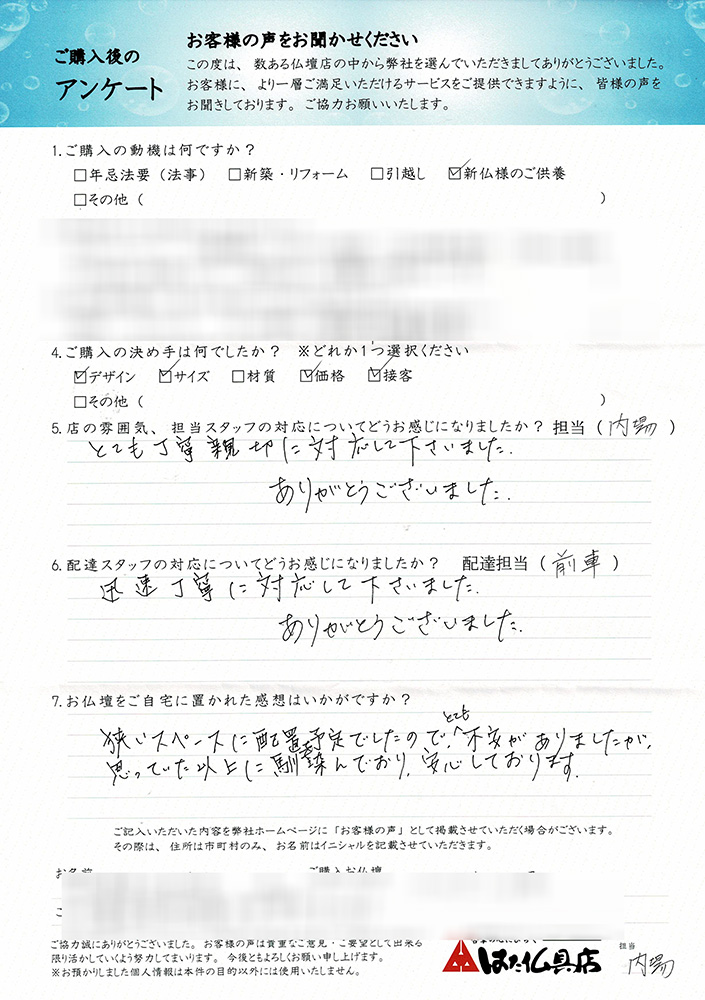 ご購入後の
アンケート
お客様の声をお聞かせください
この度は、数ある仏壇店の中から弊社を選んでいただきましてありがとうございました。
お客様に、より一層ご満足いただけるサービスをご提供できますように、皆様の声を
お聞きしております。ご協力お願いいたします。
1.ご購入の動機は何ですか？
□年忌法要（法事） □新築・リフォーム □引越し ☑新仏様のご供養
□その他（ ）
4.ご購入の決め手は何でしたか？ ※どれか1つ選択ください
☑デザイン ☑サイズ □材質 ☑価格 ☑接客
□その他（ ）
5.店の雰囲気、担当スタッフの対応についてどうお感じになりましたか？担当（内場）
とても丁寧親切に対応して下さいました.
ありがとうございました.
6.配達スタッフの対応についてどうお感じになりましたか？ 配達担当（前車）
迅速丁寧に対応して下さいました.
ありがとうございました.
7.お仏壇をご自宅に置かれた感想はいかがですか？
狭いスペースに配置予定でしたので、とても不安がありましたが、
思っていた以上に馴染んでおり、安心しております.
ご記入いただいた内容を弊社ホームページに「お客様の声」として掲載させていただく場合がございます。
その際は、住所は市町村のみ、お名前はイニシャルを記載させていただきます。
お名前 ご購入お仏壇
ご
ご協力誠にありがとうございました。お客様の声は貴重なご意見・ご要望として出来る
限り活かしていくよう努力してまいります。今後ともよろしくお願い申し上げます。
※お預かりしました個人情報は本件の目的以外には使用いたしません。
はた仏具店
担当
内場